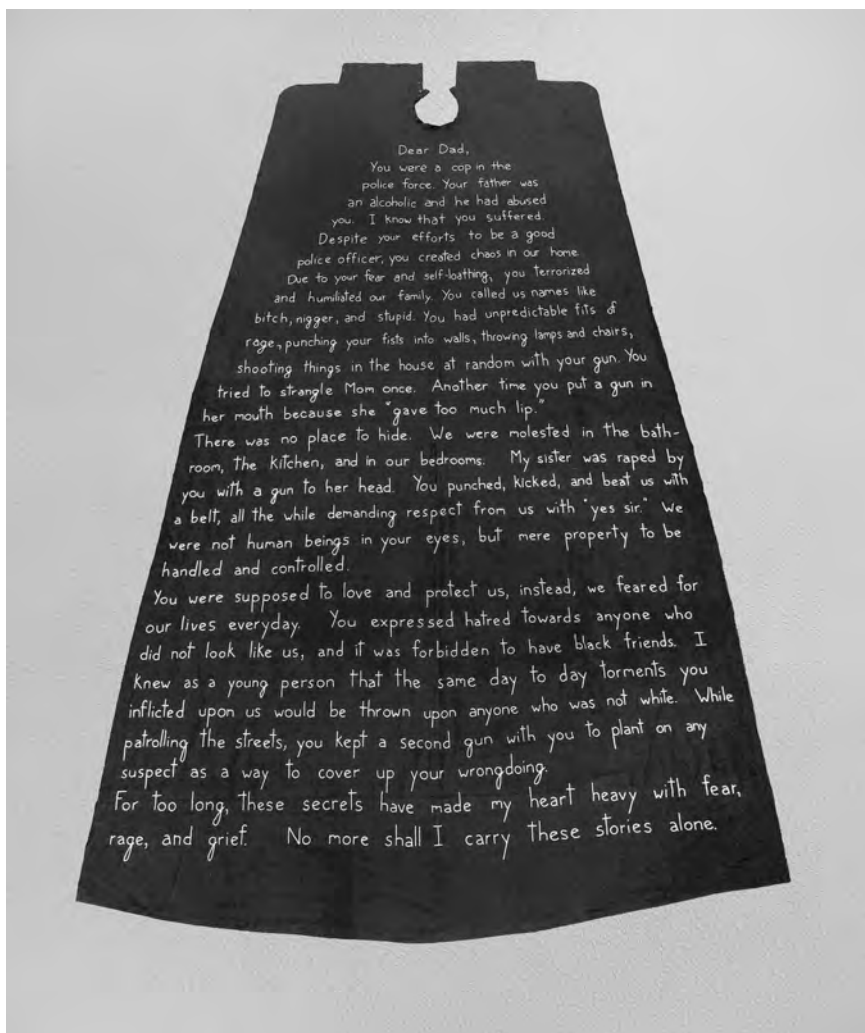 Dear Dad,
You were a cop in the
police force. Your father was
an alcoholic and he had abused
you. I know that you suffered.
Despite your efforts to be a good
police officer, you created chaos in our home
Due to your fear and self-loathing, you terrorized
and humiliated our family. You called us names like
bitch, nigger, and stupid. You had unpredictable fits of
rage, punching your fists into walls, throwing lamps and chairs,
shooting things in the house at random with your gun. You
tried to strangle Mom once. Another time you put a gun in
her mouth because she "gave too much lip."
There was no place to hide. We were molested in the bath-
room, the kitchen, and in our bedrooms. My sister was raped by
you with a gun to her head. You punched, kicked, and beat us with
a belt, all the while demanding respect from us with "yes sir." We
were not human beings in your eyes, but mere property to be
handled and controlled.
You were supposed to love and protect us, instead, we feared for
our lives everyday. You expressed hatred towards anyone who
did not look like us, and it was forbidden to have black friends. I
knew as a young person that the same day to day torments you
inflicted upon us would be thrown upon anyone who was not white. While
patrolling the streets, you kept a second gun with you to plant on any
suspect as a way to cover up your wrongdoing.
For too long, these secrets have made my heart heavy with fear,
rage, and grief. No more shall I carry these stories alone.